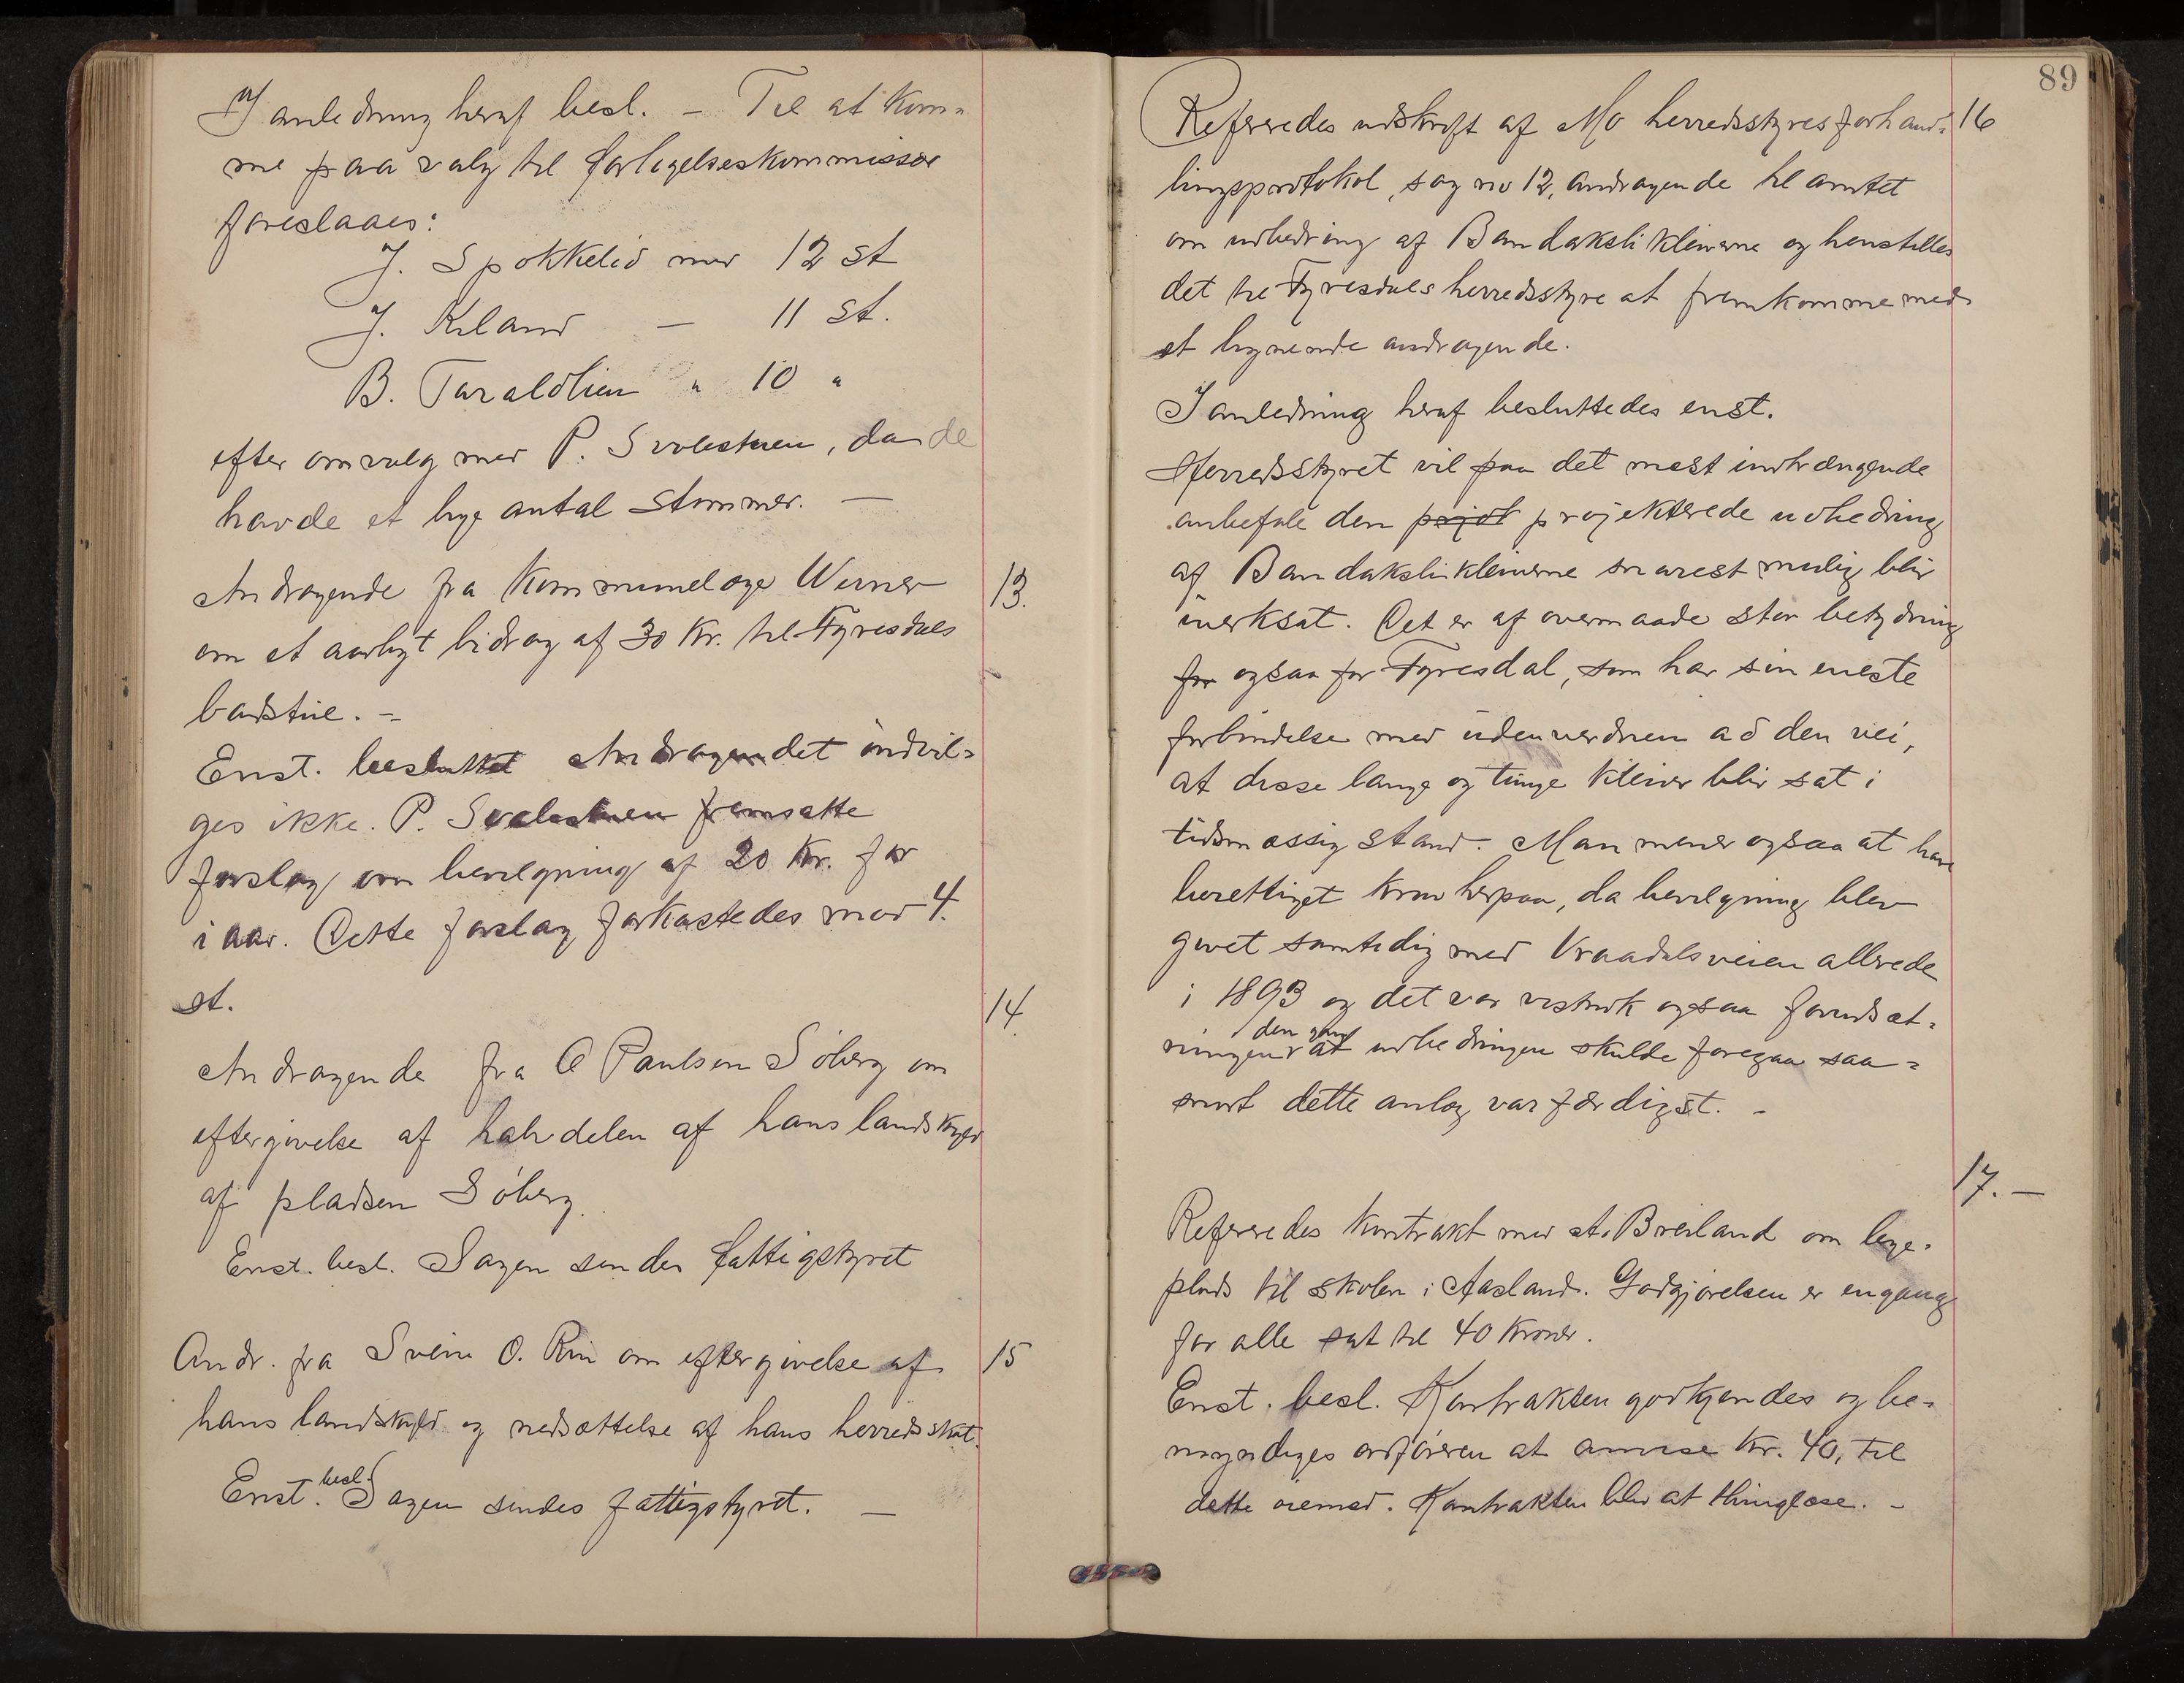 I anledning heraf besl. – Til at kom=
me paa valg til forligelseskommissær
foreslaaes:
J. Spokkelid med 12 st
J. Kiland – 11 st.
B. Taraldlien " 10 "
efter omvalg med P. Svolestuen, da de
havde et lige antal stemmer. –
13.
Andragende fra Kommunelæge Werner
om et aarligt bidrag af 30 Kr. til Fyresdals
badstue. –
Enst. besluttet Andragendet indvil=
ges ikke. P. Svolestuen fremsatte
forslag om bevilgning af 20 Kr. for
i aar. Dette forslag forkastedes mod 4.
st.
14.
Andragende fra O Paulsen Söberg om
eftergivelse af halvdelen af hans landskyld
af pladsen Söberg.
Enst. besl. Sagen sendes fattigstyret
15
Andr. fra Svein O. Rui om eftergivelse af
hans landskyld og nedsættelse af hans herredsskat.
Enst. besl. Sagen sendes fattigstyret. –
89
16
Refereredes udskrift af Mo herredsstyres forhand=
lingsprotokol, sag no 12, andragende til amtet
om udbedring af Bandaksliklevene og henstilles
det til Fyresdals herredsstyre at fremkomme med
et lignende andragende.
I anledning heraf besluttedes enst.
Herredsstyret vil paa det mest indtrængende
anbefale den projekterede udbedring
af Bandaksliklevene snarest mulig blir
iverksat. Det er af overmaade stor betydning
for ogsaa for Fyresdal, som har sin eneste
forbindelse med udenverdnen ad den vei,
at disse lange og tunge klever blir sat i
tidsmæssig stand. Man mener ogsaa at have
berettiget krav herpaa, da bevilgning blev
givet samtidig med Vraadalsveien allerede
i 1893 og det var vistnok ogsaa forudsæt=
ningen den gang at udbedringen skulde foregaa saa=
snart dette anlæg var færdigst. –
17. –
Refereredes Kontrakt med A. Breiland om lege=
plads til skolen i Aasland. Godgjørelsen er engang
for alle sat til 40 Kroner.
Enst. besl. Kontrakten godkjendes og be=
myndiges ordføreren at anvise Kr. 40, til
dette øiemed. Kontrakten blir at thinglæse. –